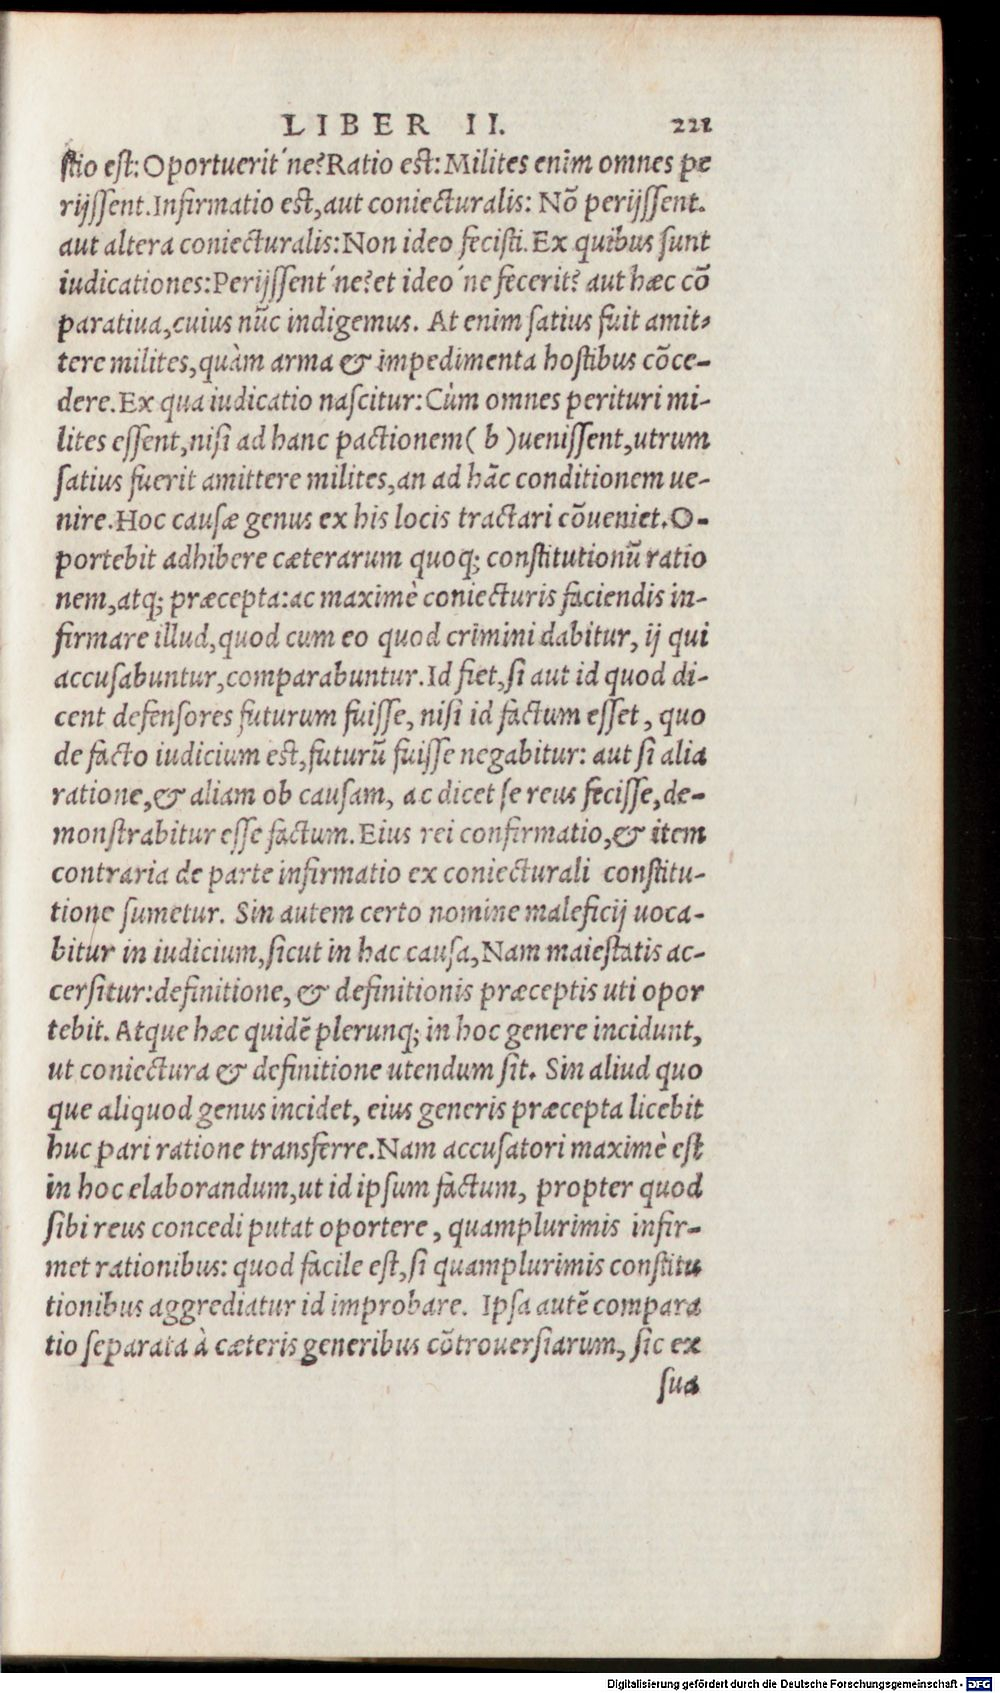 LIBER II. 221
ſtio eſt: Oportuerit´ne? Ratio eſt: Milites enim omnes pe
rijſſent. Infirmatio eſt, aut coniecturalis: Nõ perijſſent.
aut altera coniecturalis: Non ideo feciſti. Ex quibus ſunt
iudicationes: Perijſſent´ne? et ideo´ne fecerit? aut hæc cõ
paratiua, cuius nũc indigemus. At enim ſatius fuit amit-
tere milites, quàm arma & impedimenta hoſtibus cõce-
dere. Ex qua iudicatio naſcitur: Cùm omnes perituri mi-
lites eſſent, niſi ad hanc pactionem ( b ) ueniſſent, utrum
ſatius fuerit amittere milites, an ad hãc conditionem ue-
nire. Hoc cauſæ genus ex his locis tractari cõueniet. O-
portebit adhibere cæterarum quoq; conſtitutionũ ratio
nem, atq; præcepta: ac maximè coniecturis faciendis in-
firmare illud, quod cum eo quod crimini dabitur, ij qui
accuſabuntur, comparabuntur. Id fiet, ſi aut id quod di-
cent defenſores futurum fuiſſe, niſi id factum eſſet, quo
de facto iudicium eſt, futurũ fuiſſe negabitur: aut ſi alia
ratione, & aliam ob cauſam, ac dicet ſe reus feciſſe, de-
monſtrabitur eſſe factum. Eius rei confirmatio, & item
contraria de parte infirmatio ex coniecturali conſtitu-
tione ſumetur. Sin autem certo nomine maleficij uoca-
bitur in iudicium, ſicut in hac cauſa, Nam maieſtatis ac-
cerſitur: definitione, & definitionis præceptis uti opor
tebit. Atque hæc quidẽ plerunq; in hoc genere incidunt,
ut coniectura & definitione utendum ſit. Sin aliud quo
que aliquod genus incidet, eius generis præcepta licebit
huc pari ratione transferre. Nam accuſatori maximè eſt
in hoc elaborandum, ut id ipſum factum, propter quod
ſibi reus concedi putat oportere, quamplurimis infir-
met rationibus: quod facile eſt, ſi quamplurimis conſtitu
tionibus aggrediatur id improbare. Ipſa autẽ compara
tio ſeparata à cæteris generibus cõtrouerſiarum, ſic ex
ſua
Digitalisierung gefördert durch die Deutsche Forschungsgemeinschaft - DFG